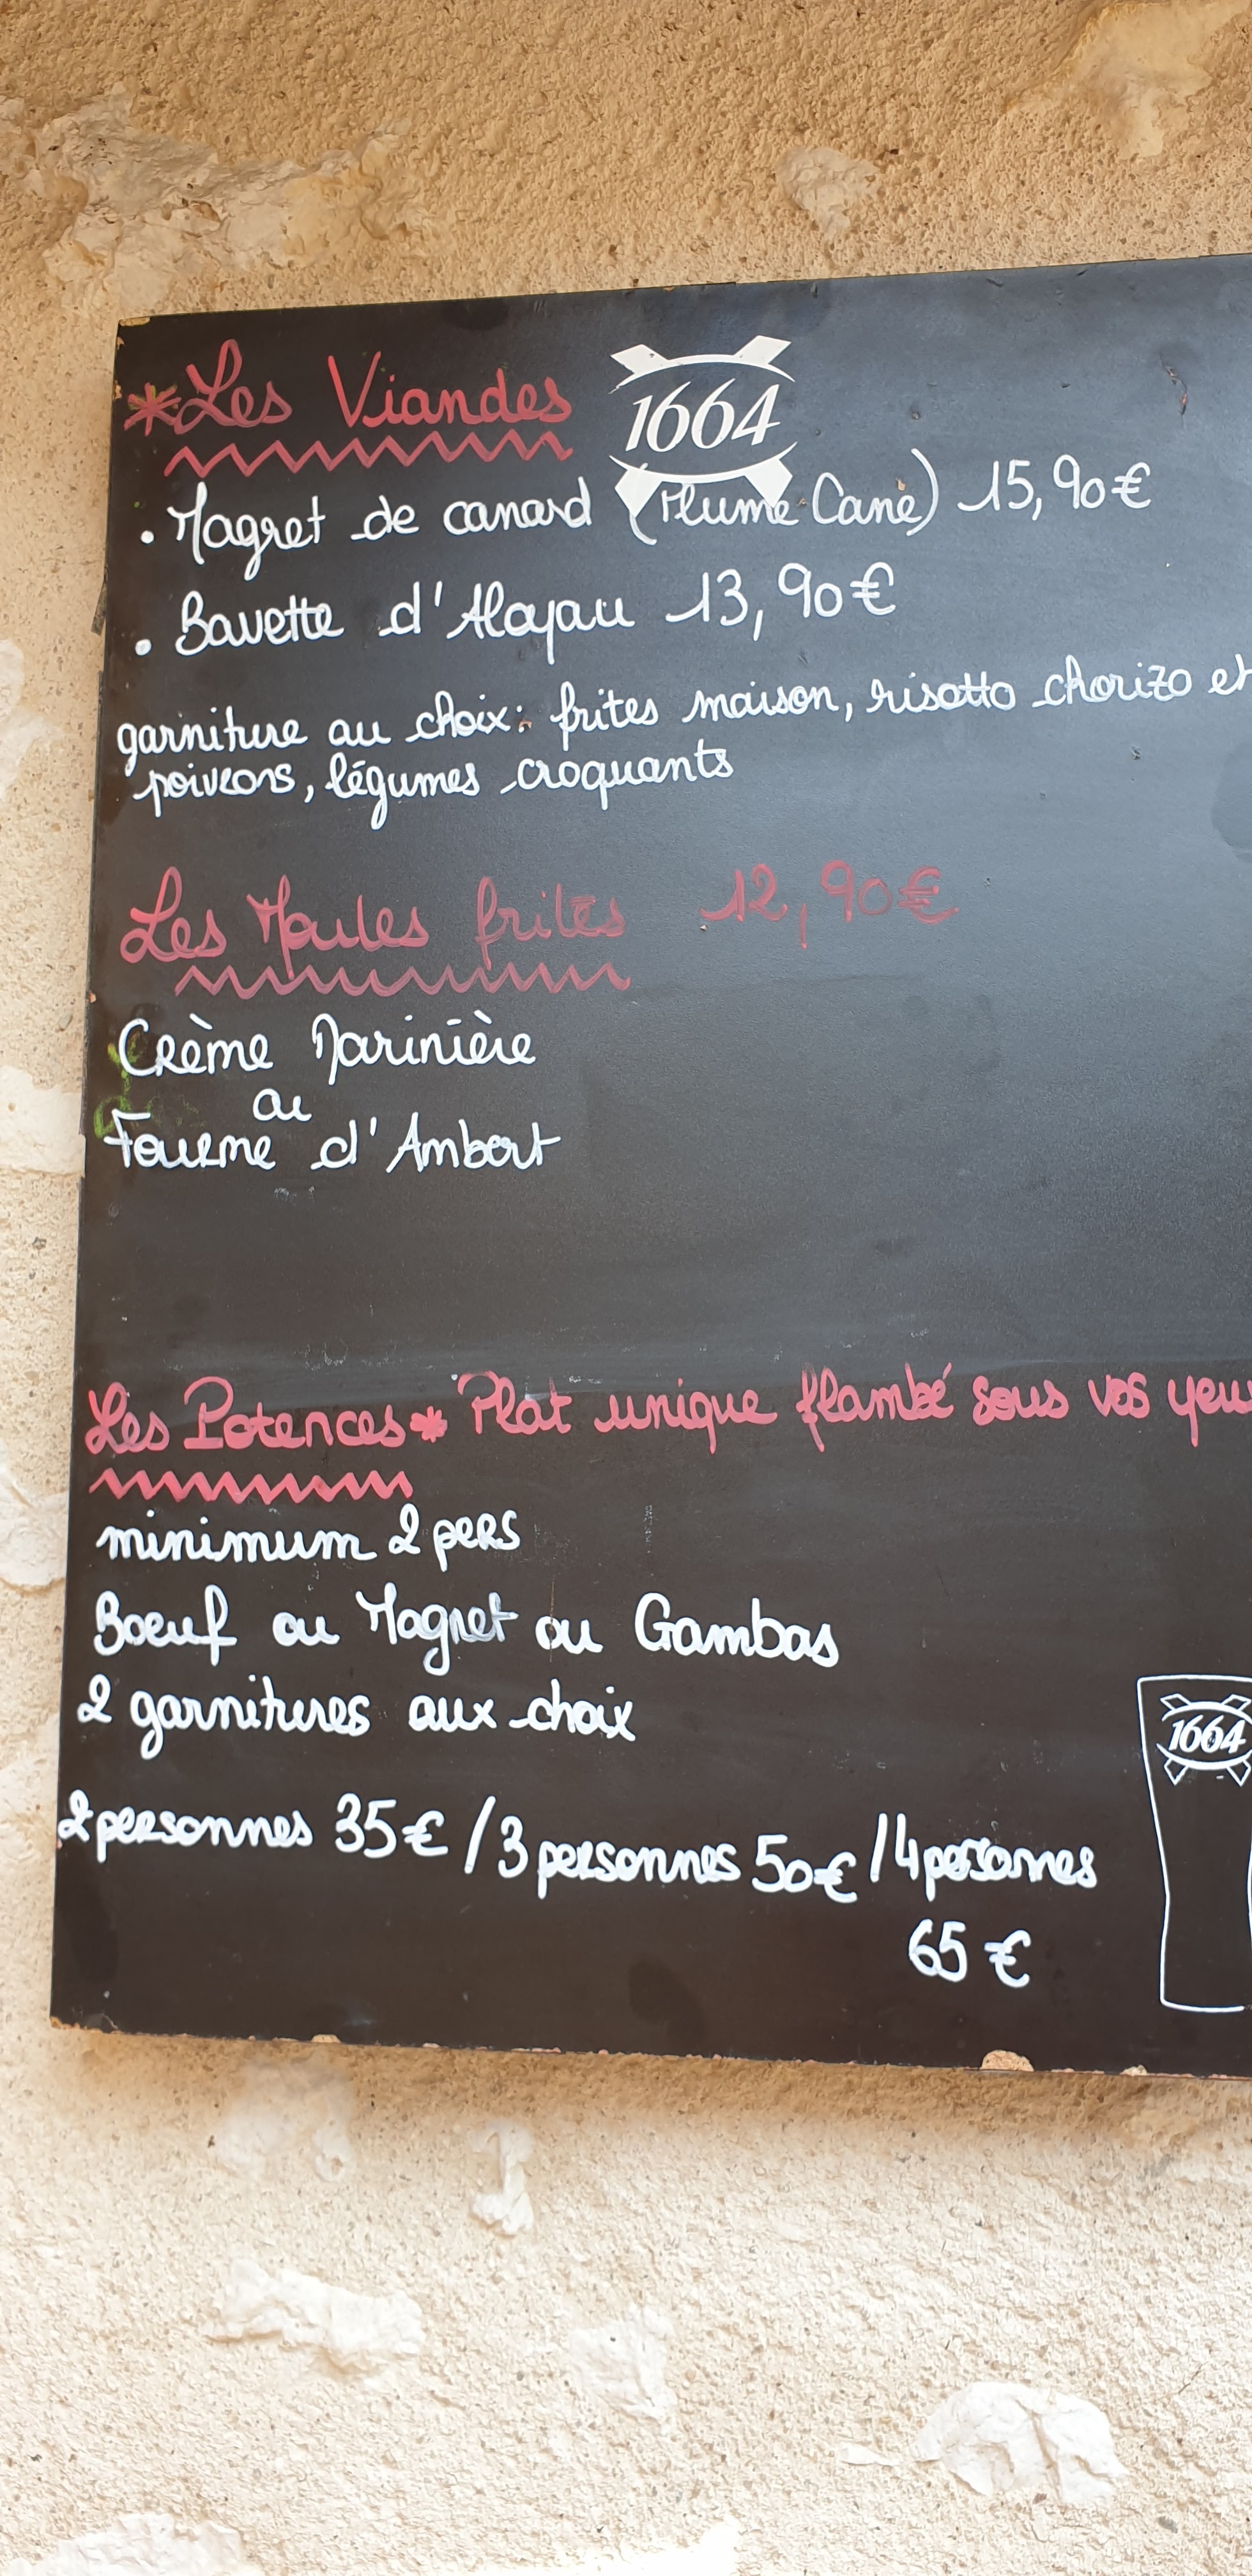 *Les Viandes
1664
• Magret de canard (Plume Cane) 15,90€
• Bavette d'Aloyau 13,90€
garniture au choix: frites maison, risotto chorizo et
poivrons, légumes croquants
Les Moules frites 12,90€
Crème Marinière
ou
Fourme d'Ambert
Les Potences* Plat unique flambé sous vos yeu
minimum 2 pers
Boeuf ou Magret ou Gambas
2 garnitures aux choix
1664
2 personnes 35€ / 3 personnes 50€ / 4 personnes
65€